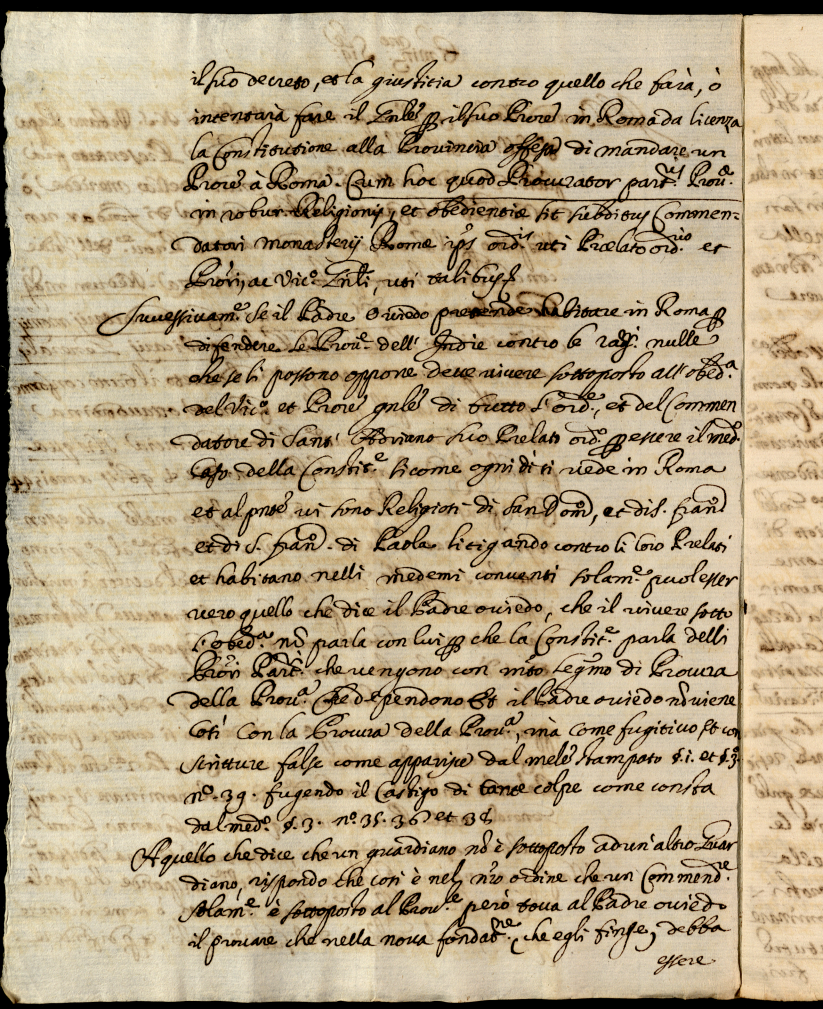 il suo decreto, et la giustitia contro quello che farà, ò
intentarà fare il Gnle p il suo Prore in Roma da licenza
la Constitutione alla Provincia offesa di mandare un
Prore à Roma. Cum hoc quod Procurator part.ris Prov.æ
in robur Religionis, et obedientiæ sit subditus Commen=
datori monasterij Romæ ips ord.is uti Prælato ord.rio et
Prori, ac Vic.o Gnli, uti talibus
Successivam.e se il Padre Oviedo pretende habitare in Roma p
difendere le Prov.e dell' Indie contro le nulle
che se li possono oppone deve vivere sottoposto all' obed.a
del Vic.o et Prore gnle di tutto l' ord.e, et del Commen
datore di Sant' Adriano suo Prelato ord.o p essere il med.o
Caso della Constit.e sicome ogni dì si vede in Roma
et al pnte vi sono Religiosi di San Dom, et di S. Fran
et di S. Fran. di Paola litigando contro li loro Prelati
et habitano nelli medemi conventi solam.e puol esser
vero quello che dice il Padre oviedo, che il vivere sotto
l' obed.a nō parla con lui p che la Constit.e parla delli
Prori Part. che vengono con legmo di Procura
della Prov.a Che dependono Et il Padre oviedo nō viene
così Con la Procura della Prov.a, mà come fugitivo et con
scritture false come apparisce dal stampato §. 1. et §. 3.
n.o 39. fugendo il Castigo di tante colpe come consta
dal med.o §. 3. n.o 35. 36 et 38
A quello che dice che un guardiano nō è sottoposto ad un' altro Guar
diano, rispondo che così è nel nro ordine che un Commend.e
solam.e è sottoposto al Prov.e però tocca al Padre oviedo
il provare che nella nova fondat.ne, che egli finge, debba
essere